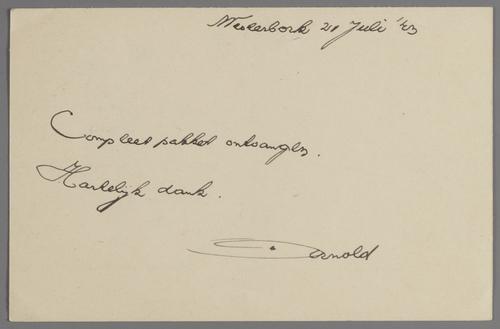 Westerbork 21 Juli '43
Compleet pakket ontvangen.
Hartelijk dank.
Arnold